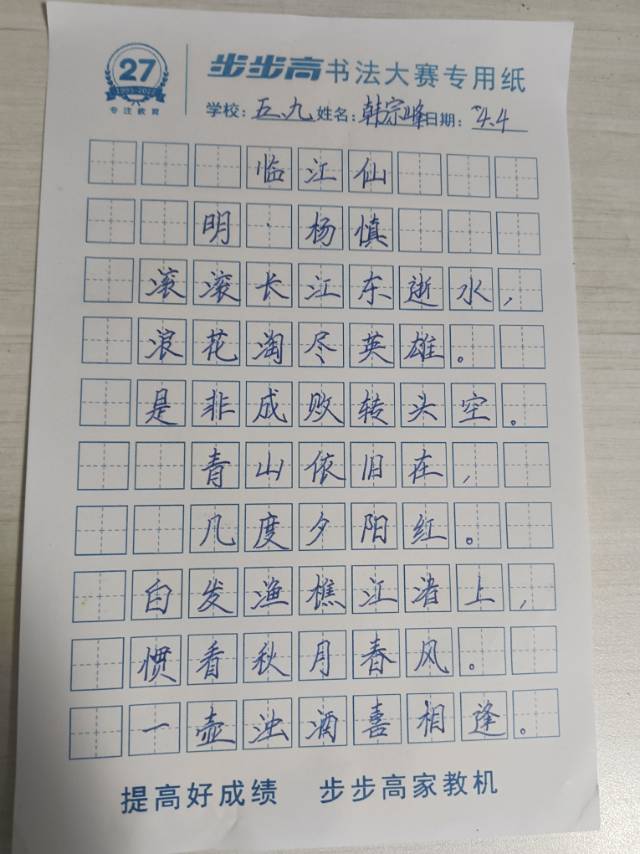 27
1995-2022
专注教育
步步高书法大赛专用纸
学校:五.九 姓名:韩宗峰 日期:4.4
临江仙
明·杨慎
滚滚长江东逝水,
浪花淘尽英雄。
是非成败转头空。
青山依旧在,
几度夕阳红。
白发渔樵江渚上,
惯看秋月春风。
一壶浊酒喜相逢。
提高好成绩 步步高家教机